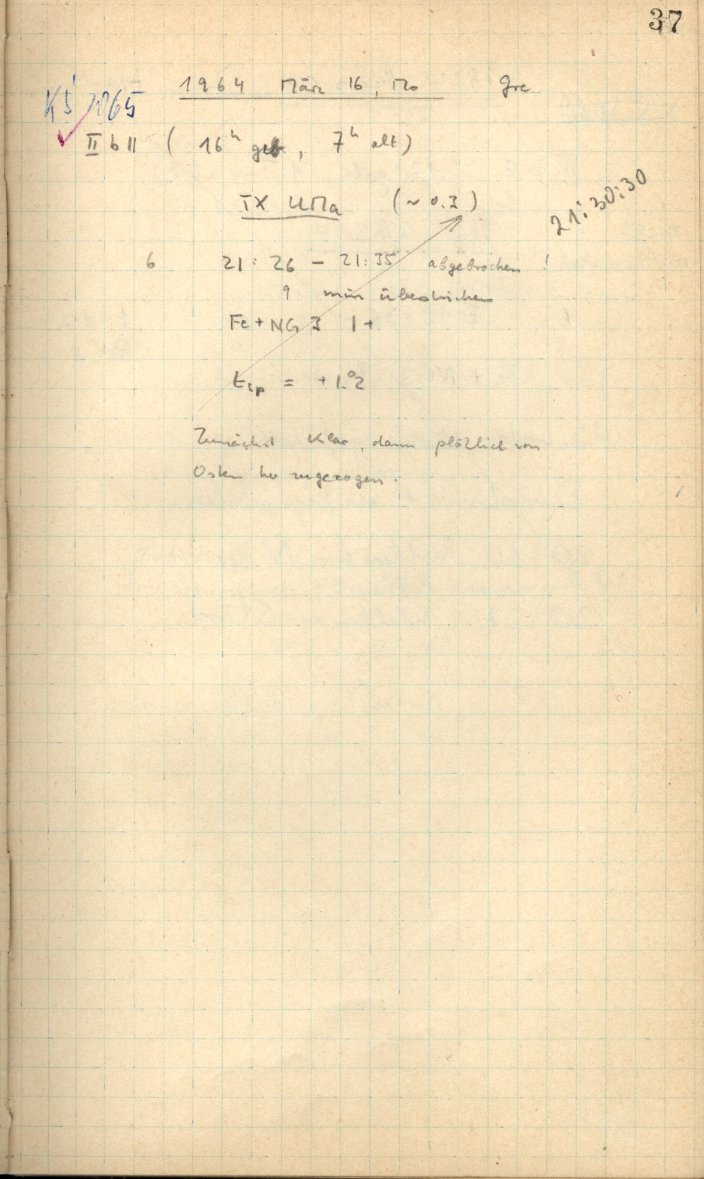 37
1964 März 16, Mo Gre
KŠ 1065
II b 11 ( 16h geb, 7h alt)
IX UMa (~ 0.3)
21:30:30
6 21:26 - 21:35 abgebrochen !
9 min überstrichen
Fe + NG 3 1+
= +1.°2
Zunächst klar, dann plötzlich von
Osten her zugezogen.